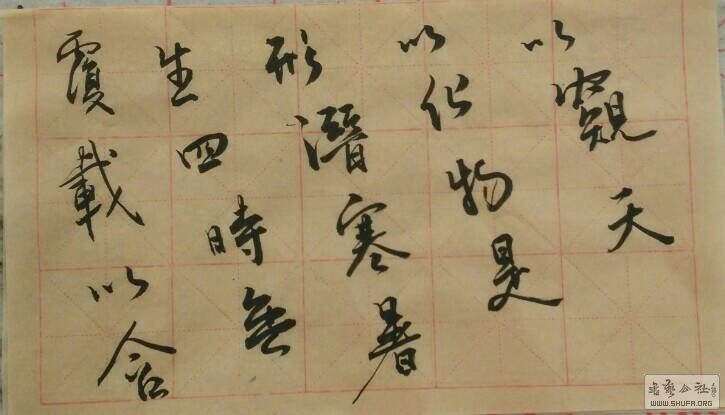 覆載以含
生四時無
形潛寒暑
以化物是
以窺天
书艺公社
WWW.SHUFA.ORG